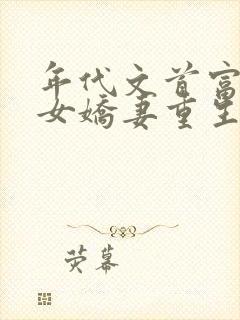 年代文首富
女娇妻重生
荧幕